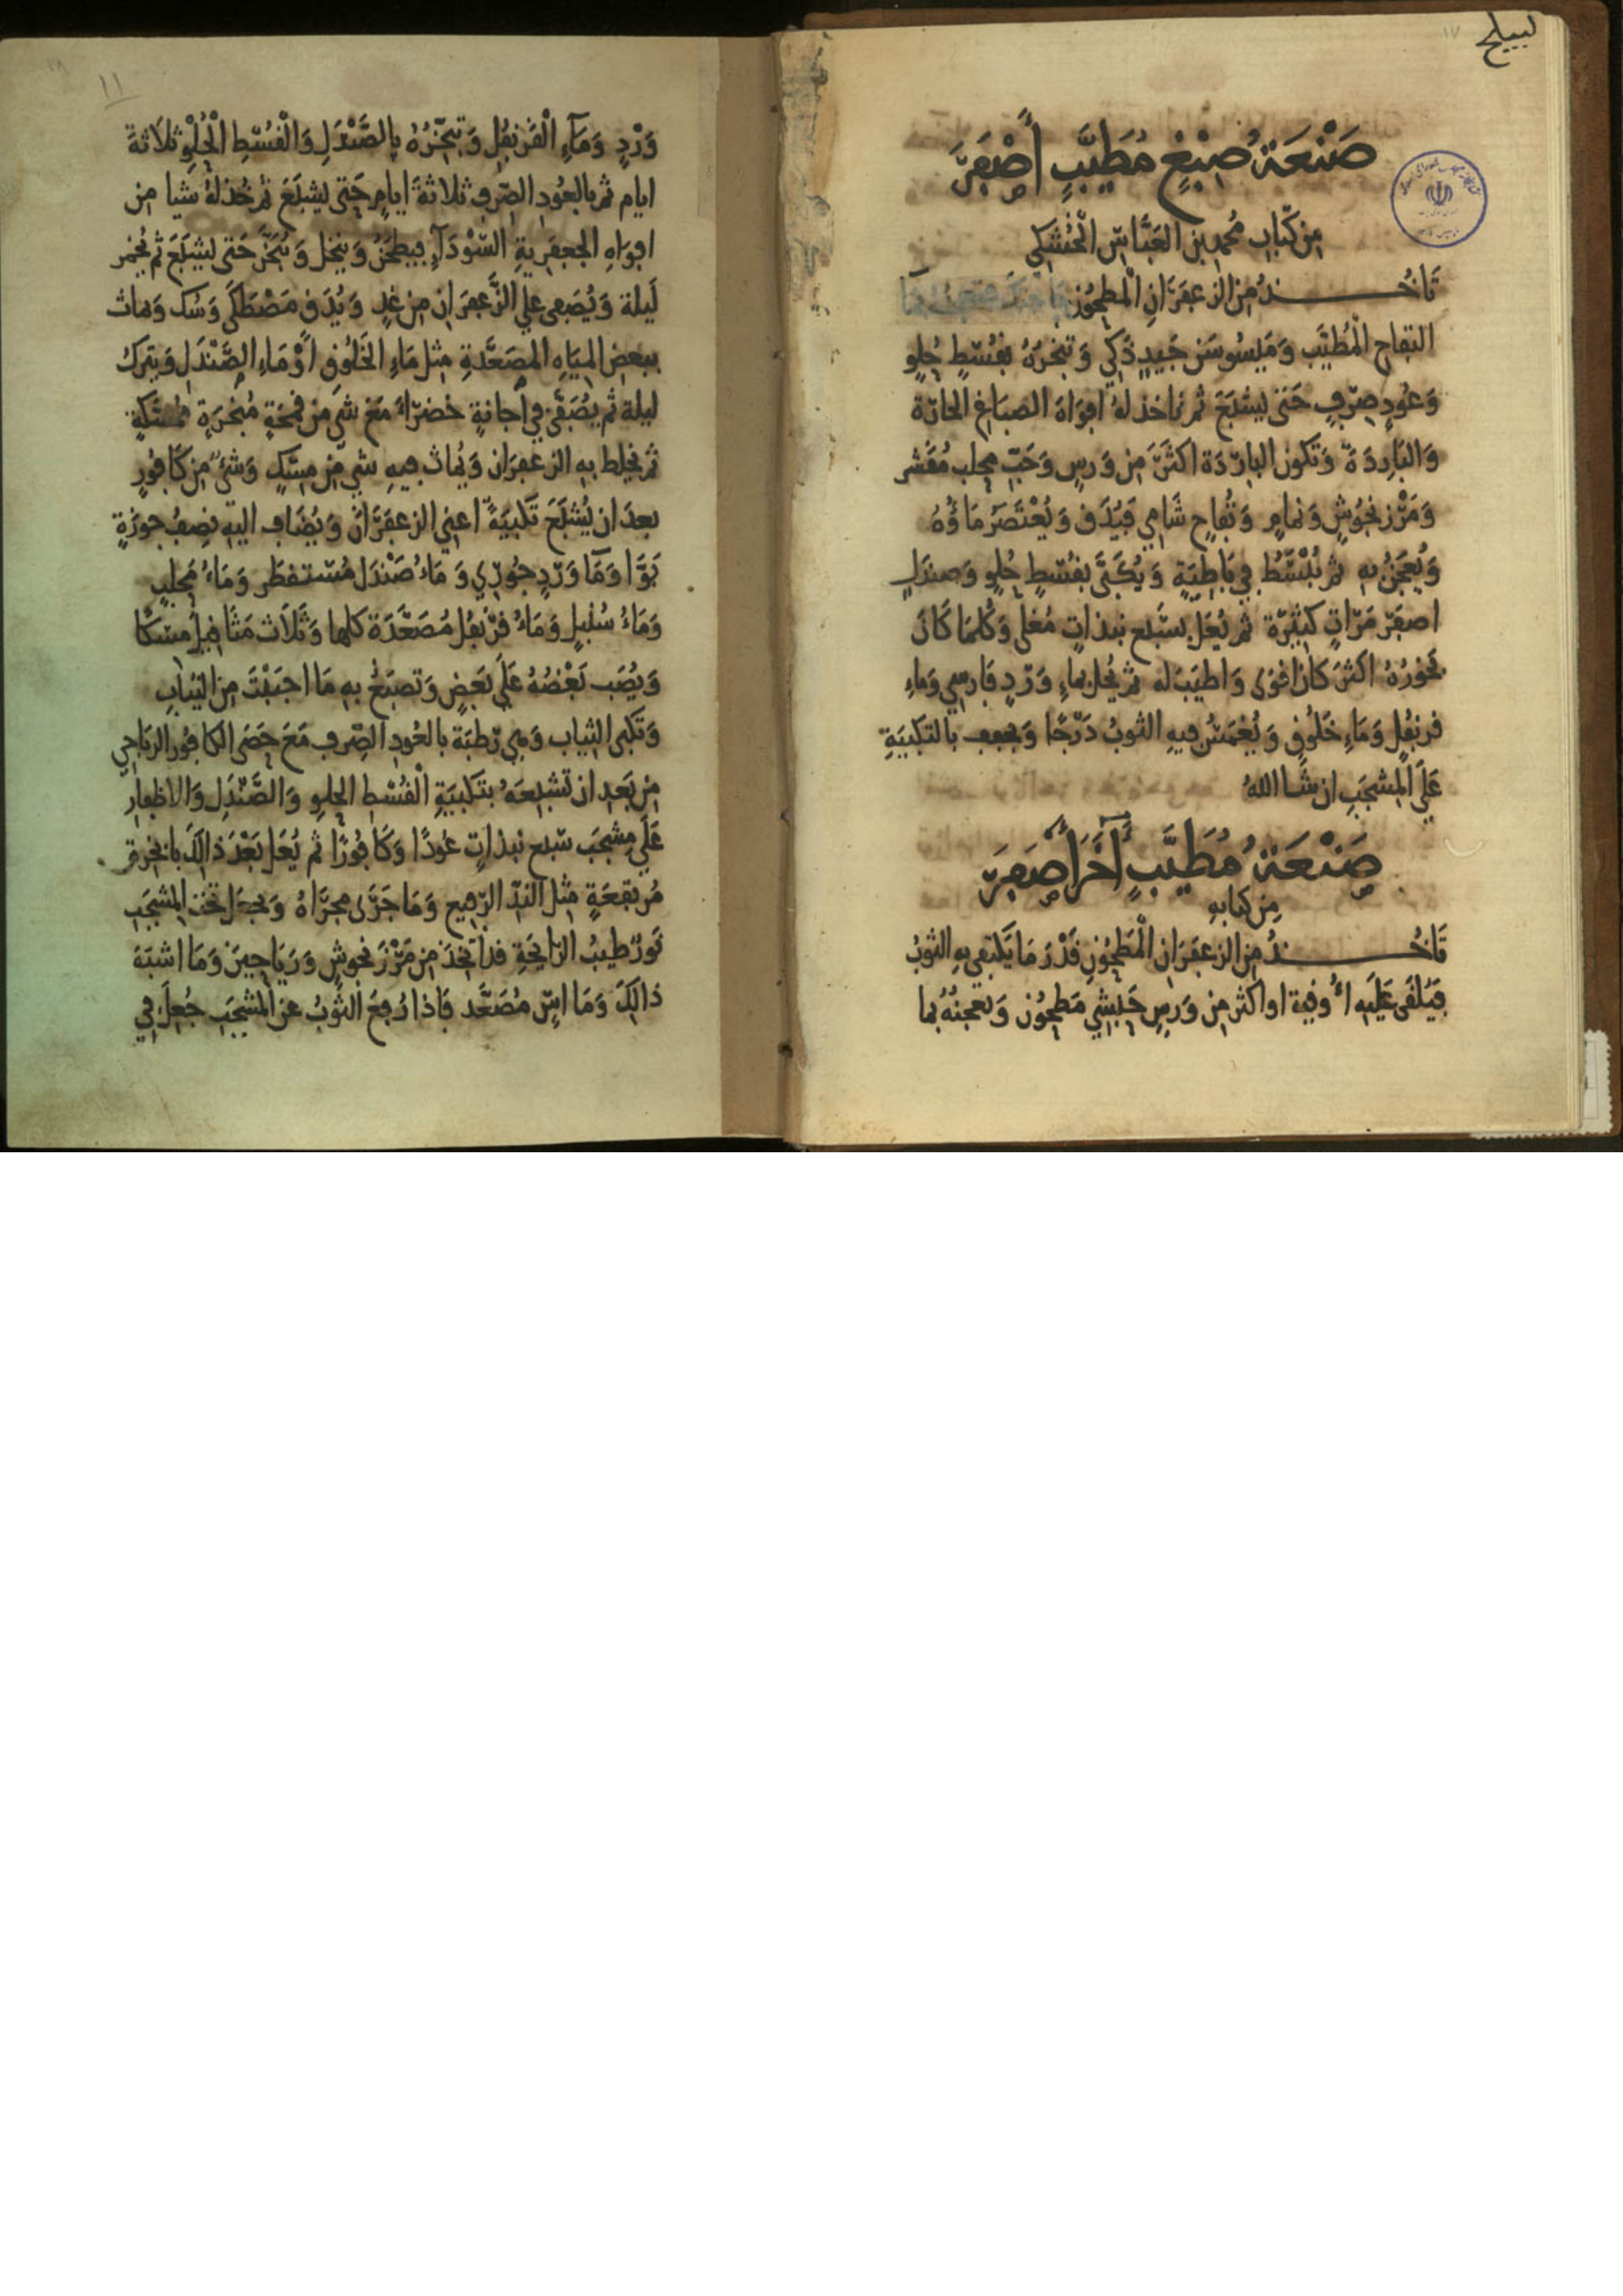 صَنْعَةُ صِبْغٍ مُطَيَّبٍ أَصْفَرَ
مِن كِتَابِ مُحمدِ بنِ العَبَّاسِ الْخُشْكِي
تَاخُـــذُ مِنَ الزعفَرَانِ الْمَطحُونِ
التفاح الْمُطَيَّب وَمَيسُوسَن جَيدٍ ذَكِي وَتبخرَهُ بقُسْطٍ حُلوٍ
وَعُودٍ صِرْفٍ حَتى يشبَعَ ثم تاخذ لهُ افوَاهَ الصبَاغِ الحَارّة
وَالبَارِدَةَ وَتَكون البارّدَة اكثَرَ مِن وَرسٍ وَحَبّ محلب مُقَشر
وَمَرْزنجُوشٍ وَنمامٍ وَتُفاحٍ شَامِي فَيُدَق وَيُعْتَصَرُ مَاؤُهُ
وَيُعجَنُ بهِ ثم يُبْسَطُ فِي بَاطِيَةٍ وَيُكَبَّى بقُسْطٍ حُلوٍ وَصندَلٍ
اصفَرَ مَرّاتٍ كثيرّة ثم يُعَلّ بسَبع نبذاتٍ مُغلى وَكُلمَا كَانَ
بَخورُهُ اكثَر كانَ اقوَى وَاطيَبَ له ثم يُحل بماءِ وَرْدٍ فَارِسِي وَماءِ
قرنفُلٍ وَمَاءِ خَلُوقٍ وَيُغمَسُ فيهِ الثوبُ دَرّجًا وَيجفف بالتكبيَةِ
عَلَى المِشجَبِ ان شَا اللهُ
صَنْعَةُ مُطَيَّبٍ آخَرَ أَصْفَرَ
مِن كتابهِ
تَاخُـــذُ مِنَ الزعفَرَانِ الْمَطحُونِ قَدْرَ مَا يَكتفِي بهِ الثوبُ
فيُلقَى عَلَيه اُوقية او اكثر مِن وَرسٍ حَبشي مَطحُون وَتعجنُهُ بما
وَرْدٍ وَمَآءِ الْقَرنفُلِ وَتبَخّرُهُ بالصَّنْدَلِ وَالْقُسْطِ الْحُلْوِ ثلاَثةَ
ايام ثم بالعُودِ الصّرفِ ثلاثةَ ايامٍ حَتى يشبَعَ ثم خُذ لهُ شَيا مِن
افوَاهِ الجعفَرِيةِ السَّوْدَآءِ فيطحَنُ وَينخل وَيُبَخَّر حَتى يشبَعَ ثم يُخمر
لَيلة وَيُضفى علَى الزَّعفَرَانِ مِن غدٍ وَيُدَق مَصْطَكَى وَسُك وَيماث
ببعضِ المِيَاهِ المصَعَّدةِ مِثل مَاءِ الخَلُوقِ اَوْ مَاءِ الصَّنْدَلِ وَيترَكُ
ليلة ثم يُصَفَّى فِي اجانةٍ خضرَاءَ مَعَ شَي مِن قمحَةٍ مُبخرَةٍ ممسَّكَةٍ
ثم يخلط بهِ الزعفَرَان وَيُماث فيهِ شي مِن مِسكٍ وَشَئٍ مِن كَافُورٍ
بعدَ ان يُشبَعَ تَكبيَةً اعنِي الزعفَرَانَ وَيُضَاف اليهِ نِصفُ جوزَةٍ
بَوَّا وَمَا وَرْدٍ جُورِي وَمَاءُ صَنْدَل مُسْتقطَر وَمَاءُ مَحلبٍ
وَمَاءُ سُنبلٍ وَمَاءُ قَرْنفُل مُصَعَّدَة كلها وَثَلاَث مَثَاقيلَ مسْكًا
وَيُصَب بَعْضُهُ عَلَى بَعَضٍ وَتصبَغُ بهِ مَا احبَبْتَ مِن الثيَابِ
وَتَكبى الثيَاب وَهِي رَطبَة بالعُودِ الصِّرفِ مَعَ حَصَى الكافُور الرَباحِي
مِن بَعدِ ان تشبِعَهُ بتَكبيَةِ الْقُسْطِ الحلوِ وَالصَّنْدَلِ وَالاظفارِ
عَلَى مِشجَب سَبع نبذاتٍ عُودًا وَكَافُورًا ثم يُعَل بَعْدَ ذالِكَ بابخرةٍ
مُرتفعَةٍ مِثل الندّ الرَّفِيع وَمَا جَرَى مجرَاهُ وَيجعَل تحتَ المشجَبِ
تَورٌ طيبُ الرَايحَةِ قدِ اتخذَ مِن مَرْزَنجوشٍ وَرَيَاحِينَ وَمَا اشبَهَ
ذالِكَ وَمَا اسٍ مُصَعَّد فَاذا رُفِعَ الثَوبُ عنِ المِشجَبِ جُعلَ فِي
١١